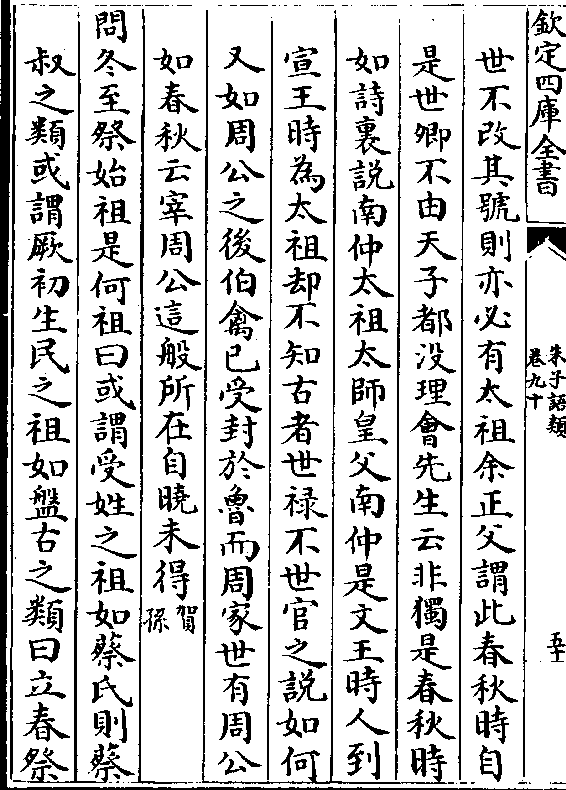 欽定四庫全書
朱子語類
卷九十
五十
世不改其號則亦必有太祖余正父謂此春秋時自
是世卿不由天子都没理會先生云非獨是春秋時
如詩裏説南仲太祖太師皇父南仲是文王時人到
宣王時為太祖却不知古者世禄不世官之説如何
又如周公之後伯禽已受封於魯而周家世有周公
如春秋云宰周公這般所在自曉未得賀孫
問冬至祭始祖是何祖曰或謂受姓之祖如蔡氏則蔡
叔之類或謂厥初生民之祖如盤古之類曰立春祭